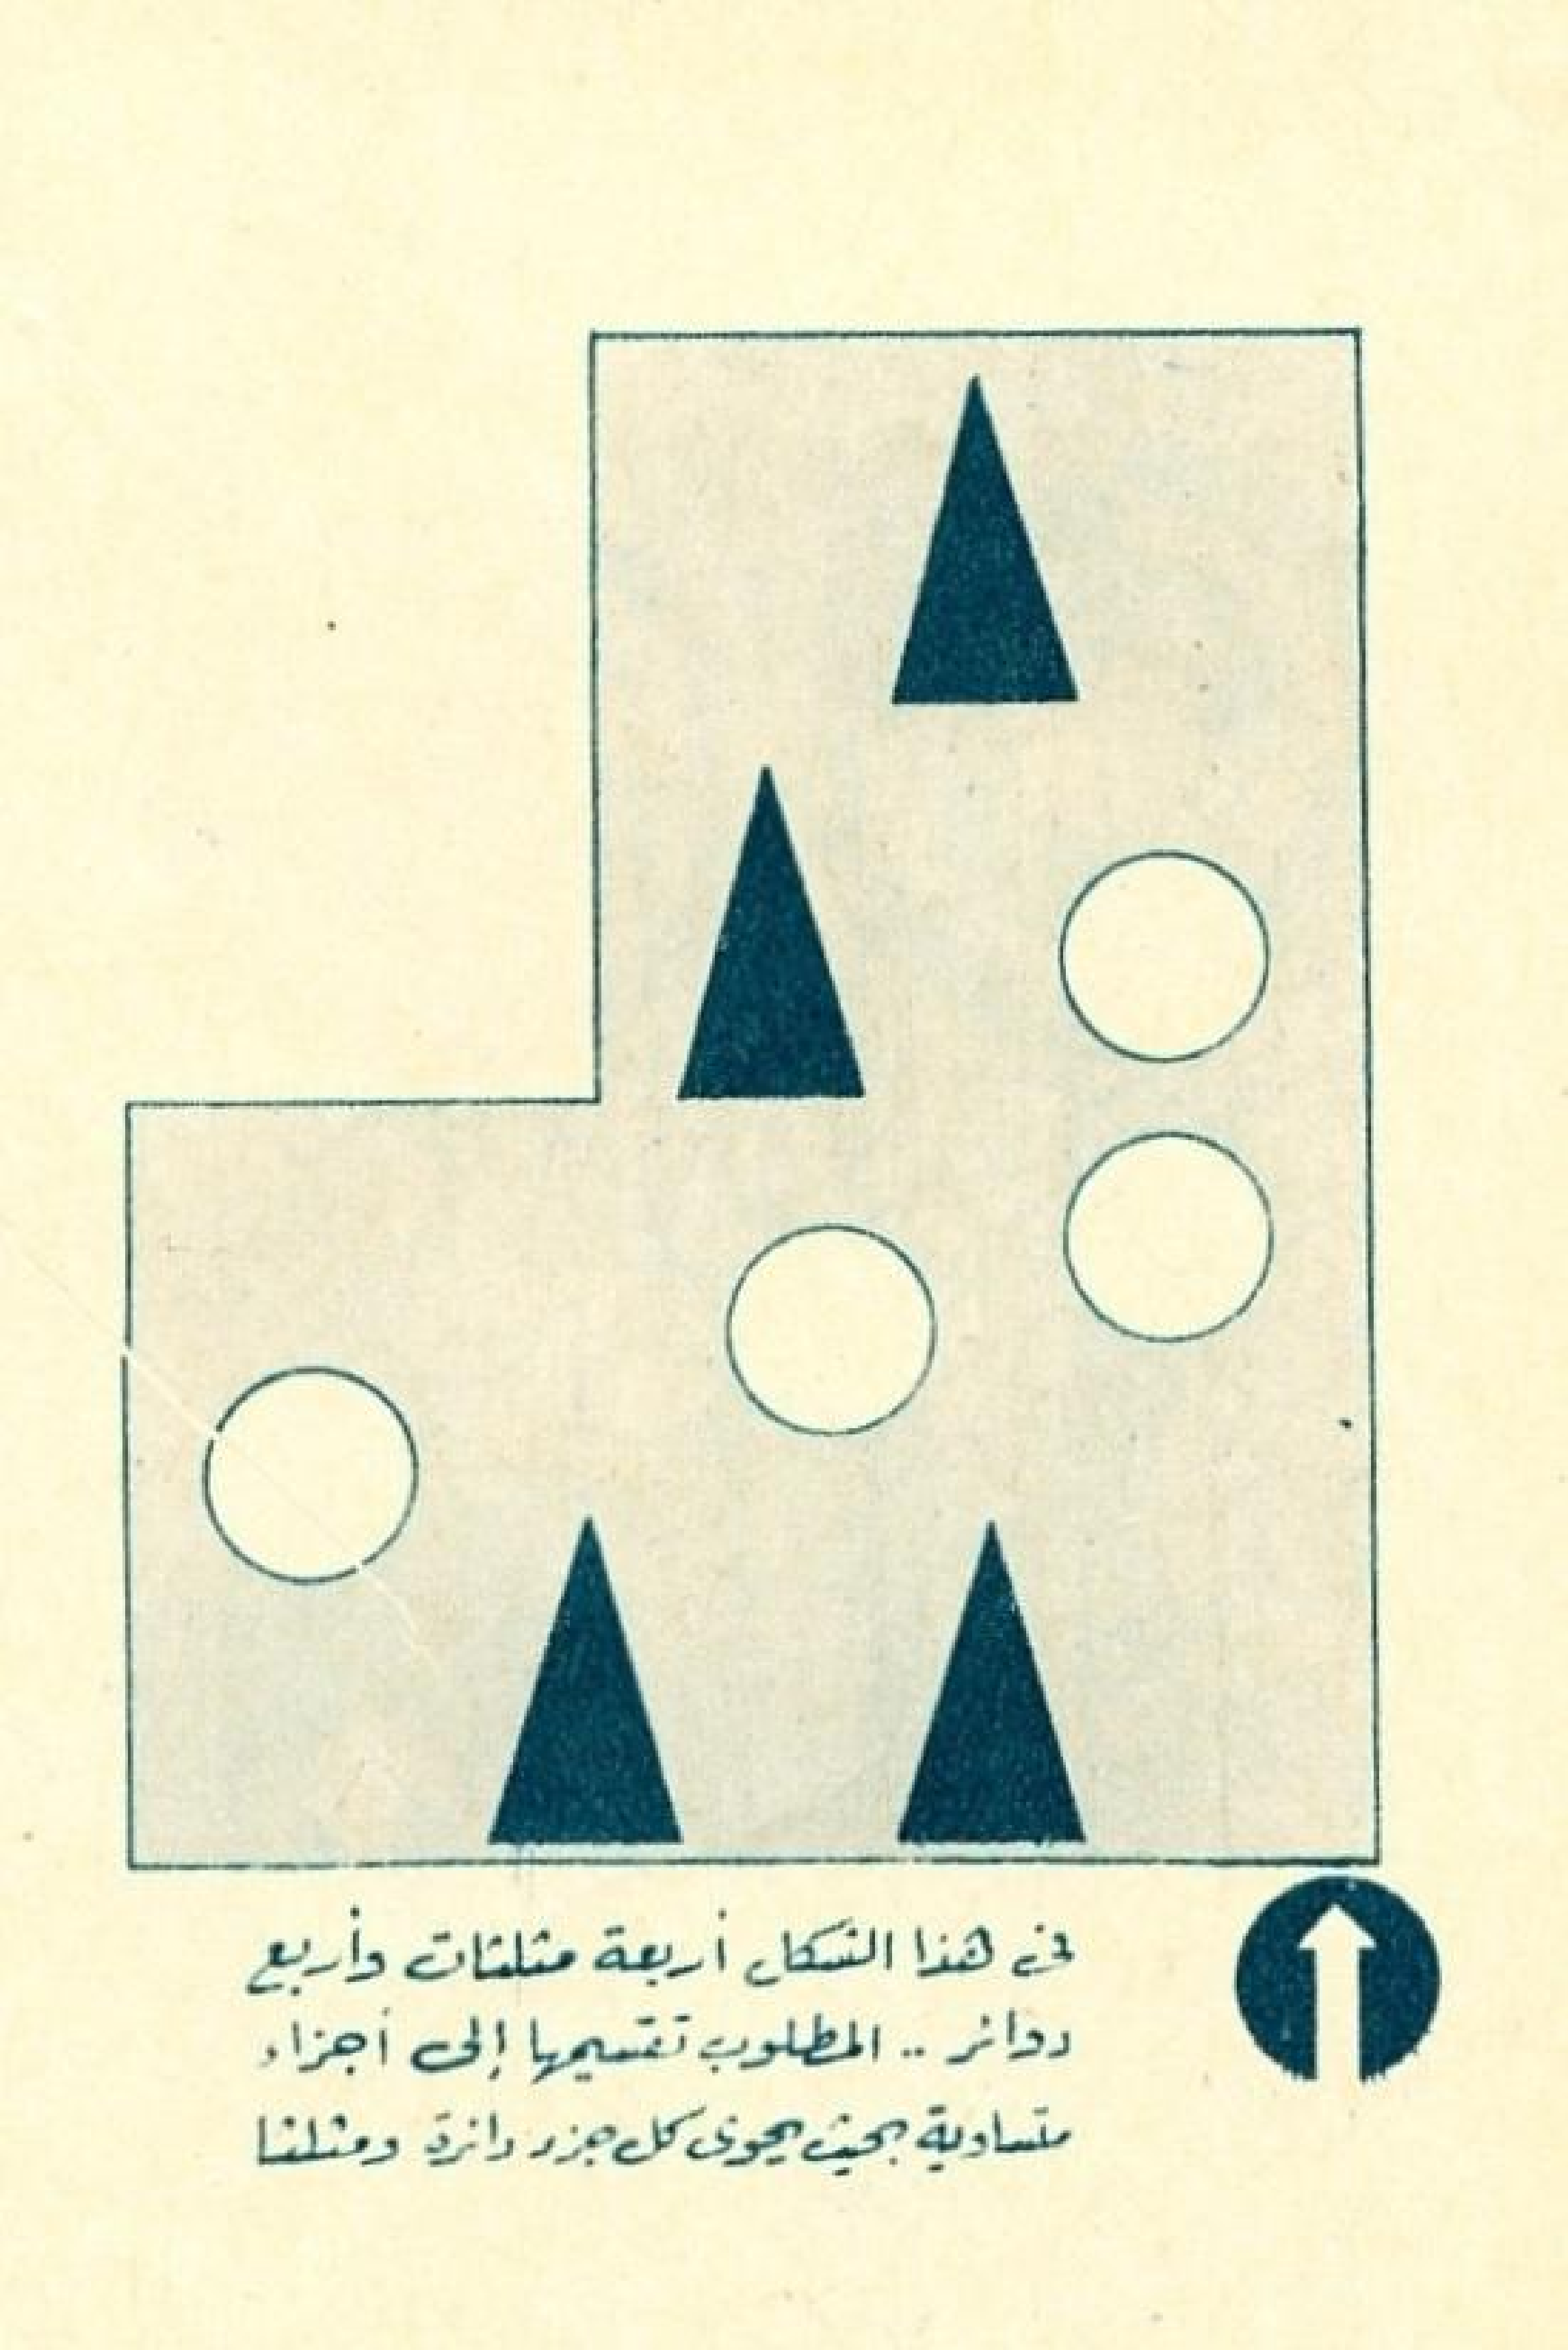 فى هذا الشكل أربعة مثلثات وأربع
دوائر .. المطلوب تقسيمها إلى أجزاء
متساوية بحيث يحوى كل جزء دائرة ومثلثا